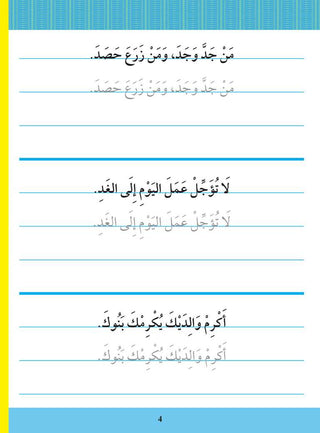 مَنْ جَدَّ وَجَدَ، وَمَنْ زَرَعَ حَصَدَ.
مَنْ جَدَّ وَجَدَ، وَمَنْ زَرَعَ حَصَدَ.
لَا تُؤَجِّلْ عَمَلَ اليَوْمِ إِلَى الغَدِ.
لَا تُؤَجِّلْ عَمَلَ اليَوْمِ إِلَى الغَدِ.
أَكْرِمْ وَالِدَيْكَ يُكْرِمْكَ بَنُوكَ.
أَكْرِمْ وَالِدَيْكَ يُكْرِمْكَ بَنُوكَ.
4